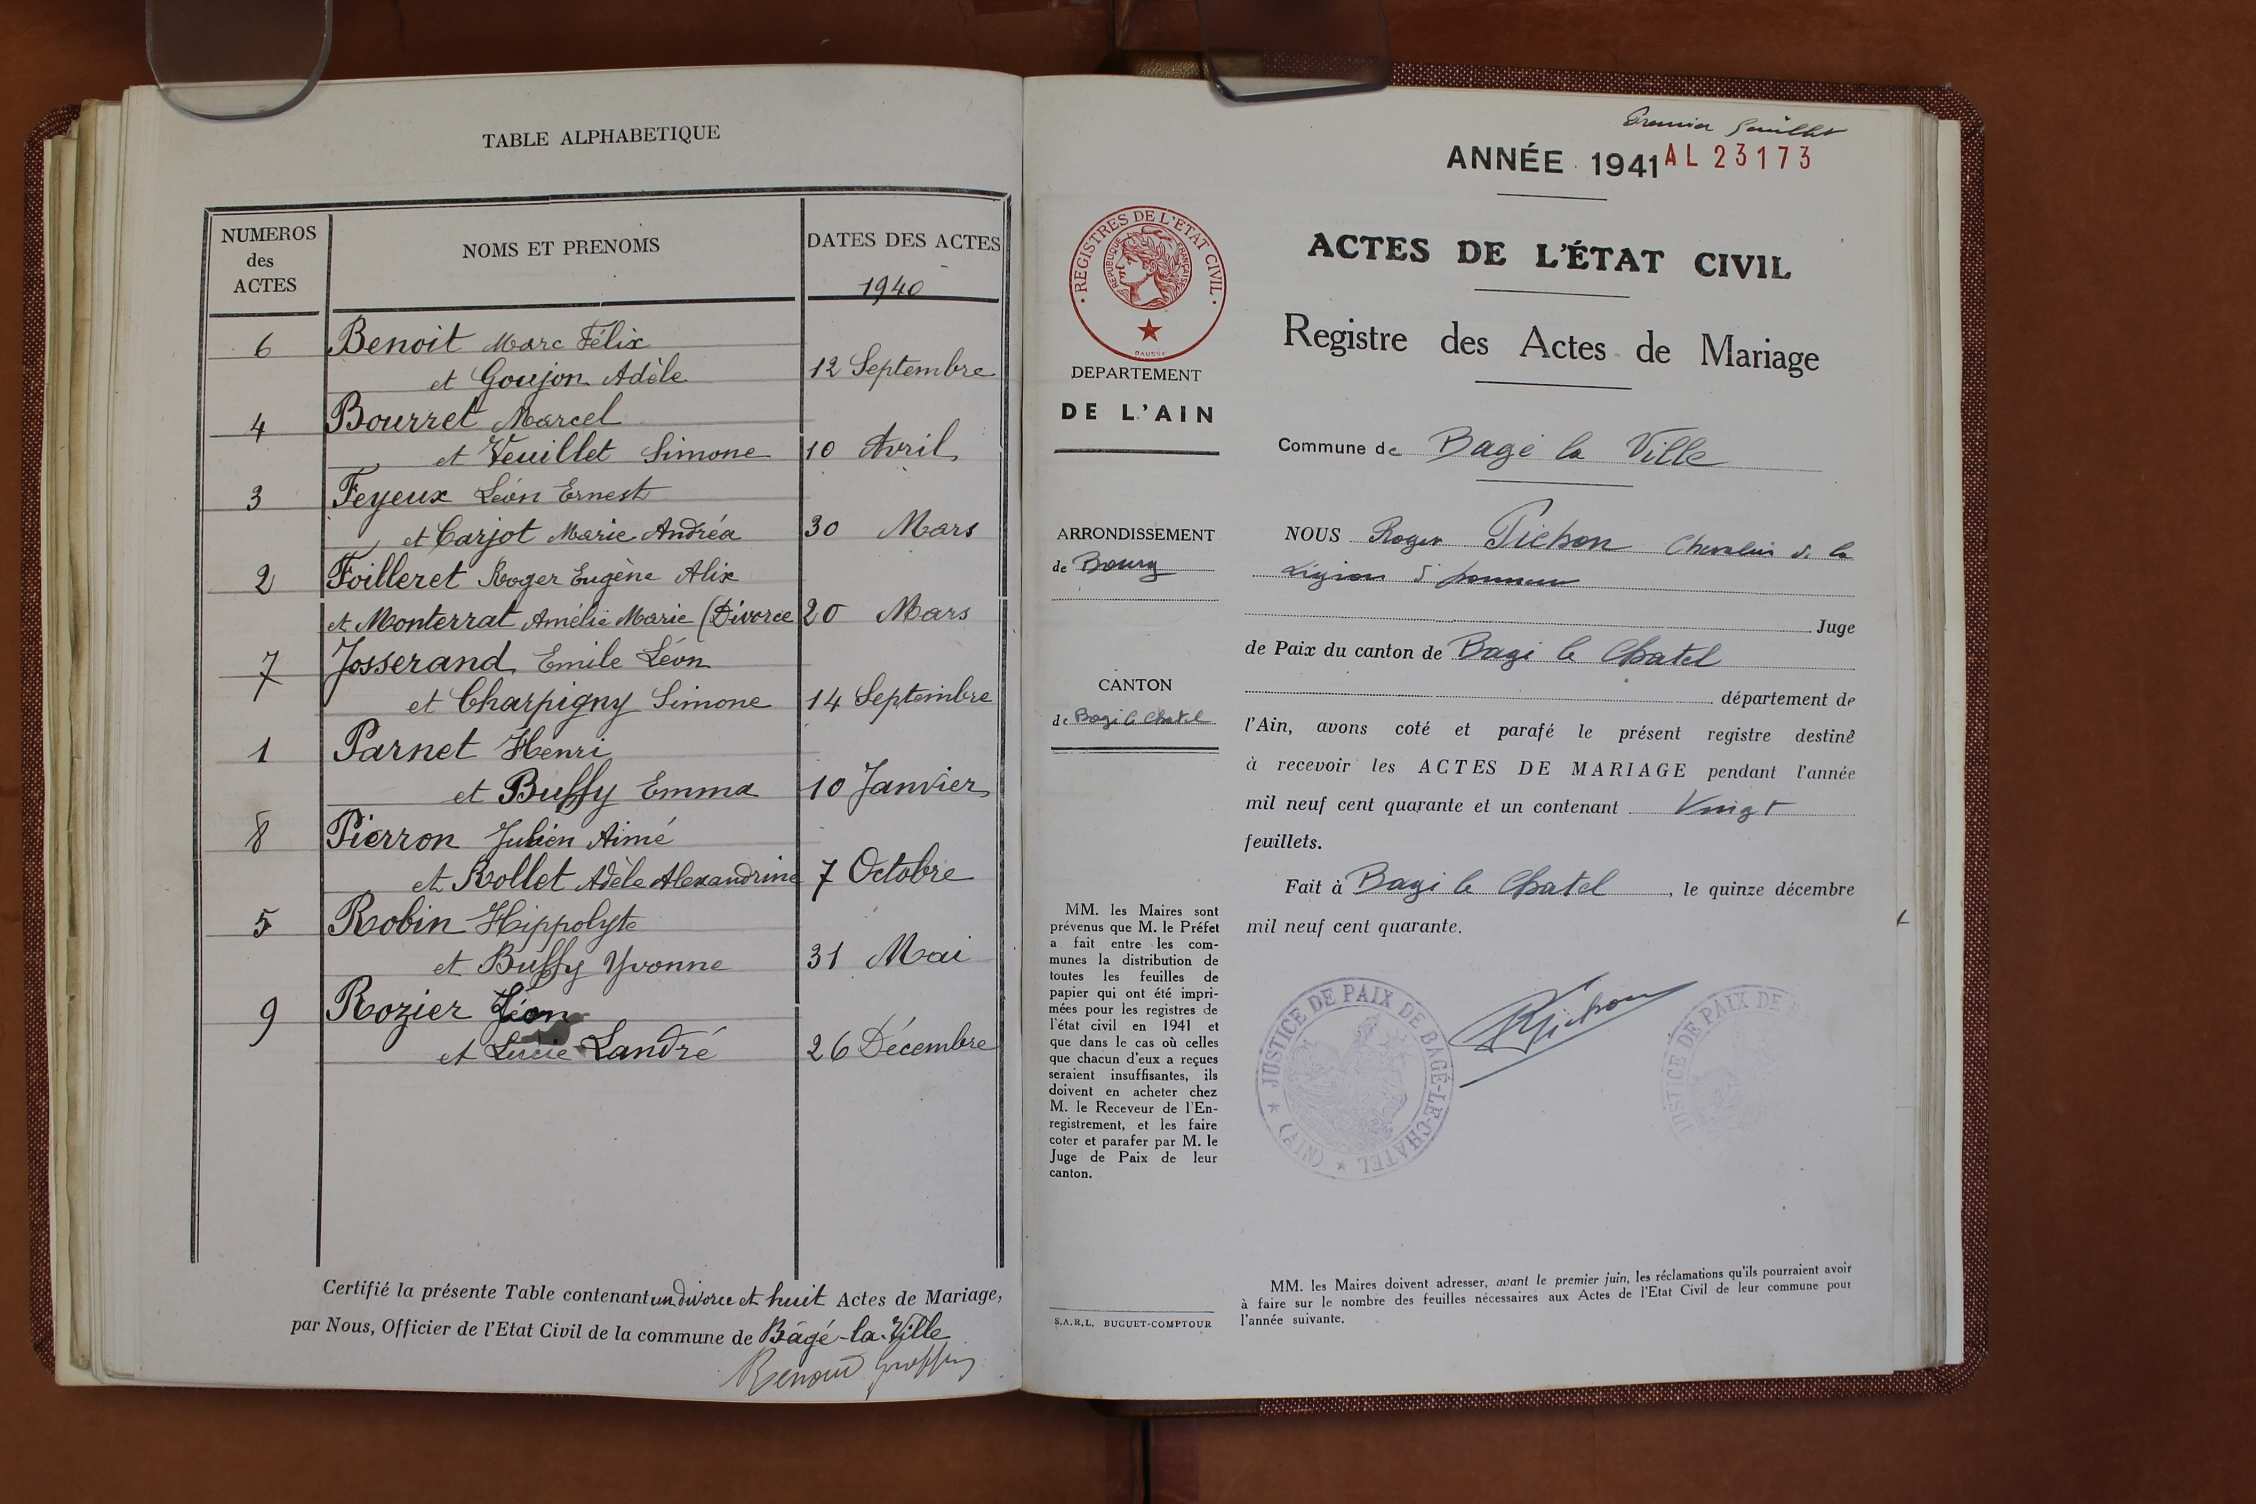 TABLE ALPHABETIQUE
NUMEROS
des
ACTES
NOMS ET PRENOMS
DATES DES ACTES
1940
6 Benoit Marc Félix
et Goujon Adèle 12 Septembre
4 Bourret Marcel
et Veuillet Simone 10 Avril
3 Feyeux Léon Ernest
et Carjot Marie Andréa 30 Mars
2 Foilleret Roger Eugène Alix
et Monterrat Amélie Marie (Divorce 20 Mars
7 Josserand Emile Léon
et Charpigny Simone 14 Septembre
1 Parnet Henri
et Buffy Emma 10 Janvier
8 Pierron Julien Aimé
et Rollet Adèle Alexandrine 7 Octobre
5 Robin Hippolyte
et Buffy Yvonne 31 Mai
9 Rozier Léon
et Lucie Landré 26 Décembre
Certifié la présente Table contenant un divorce et huit Actes de Mariage,
par Nous, Officier de l'Etat Civil de la commune de Bâgé-la-Ville
Premier feuillet
ANNÉE 1941 AL 23173
REGISTRES DE L'ETAT CIVIL
REPUBLIQUE FRANÇAISE
DAUSSY
DEPARTEMENT
DE L'AIN
ARRONDISSEMENT
de Bourg
CANTON
de Bagé le Chatel
MM. les Maires sont
prévenus que M. le Préfet
a fait entre les com-
munes la distribution de
toutes les feuilles de
papier qui ont été impri-
mées pour les registres de
l'état civil en 1941 et
que dans le cas où celles
que chacun d'eux a reçues
seraient insuffisantes, ils
doivent en acheter chez
M. le Receveur de l'En-
registrement, et les faire
coter et parafer par M. le
Juge de Paix de leur
canton.
S.A.R.L. BUGUET-COMPTOUR
ACTES DE L'ÉTAT CIVIL
Registre des Actes de Mariage
Commune de Bagé la Ville
NOUS Roger Pichon Chevalier de la
Légion d'honneur
Juge
de Paix du canton de Bagé le Chatel
département de
l'Ain, avons coté et parafé le présent registre destiné
à recevoir les ACTES DE MARIAGE pendant l'année
mil neuf cent quarante et un contenant Vingt
feuillets.
Fait à Bagé le Chatel, le quinze décembre
mil neuf cent quarante.
RPichon
JUSTICE DE PAIX DE BAGÉ-LE-CHATEL
(AIN)
JUSTICE DE PAIX DE
MM. les Maires doivent adresser, avant le premier juin, les réclamations qu'ils pourraient avoir
à faire sur le nombre des feuilles nécessaires aux Actes de l'Etat Civil de leur commune pour
l'année suivante.